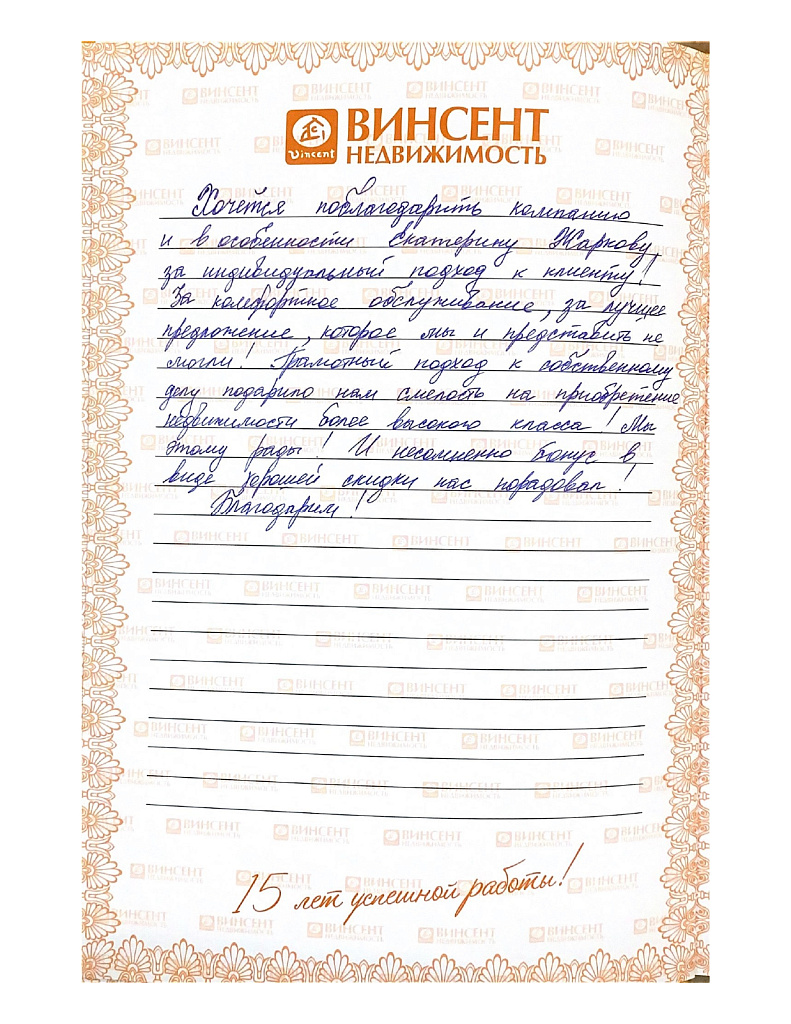 Vincent
ВИНСЕНТ
НЕДВИЖИМОСТЬ
Хочется поблагодарить компанию
и в особенности Екатерину Жаркову,
за индивидуальный подход к клиенту!
За комфортное обслуживание, за лучшее
предложение, которое мы и представить не
могли! Грамотный подход к собственному
делу подарило нам смелость на приобретение
недвижимости более высокого класса! Мы
этому рады! И несомненно бонус в
виде хорошей скидки нас порадовал!
Благодарим!
15 лет успешной работы!